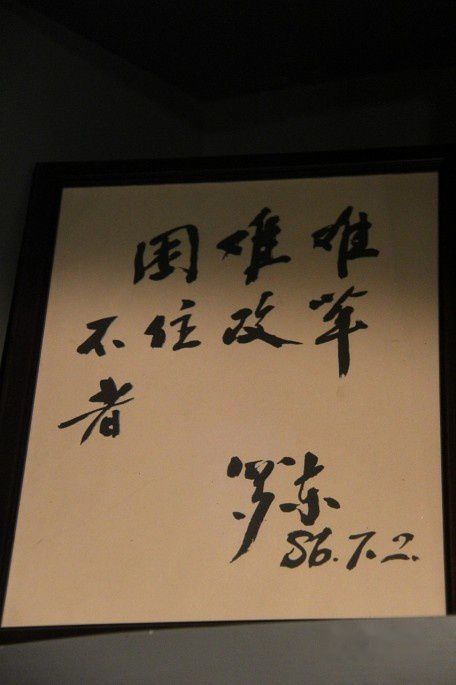 困难难
不住改革
者
罗东
86.7.2.